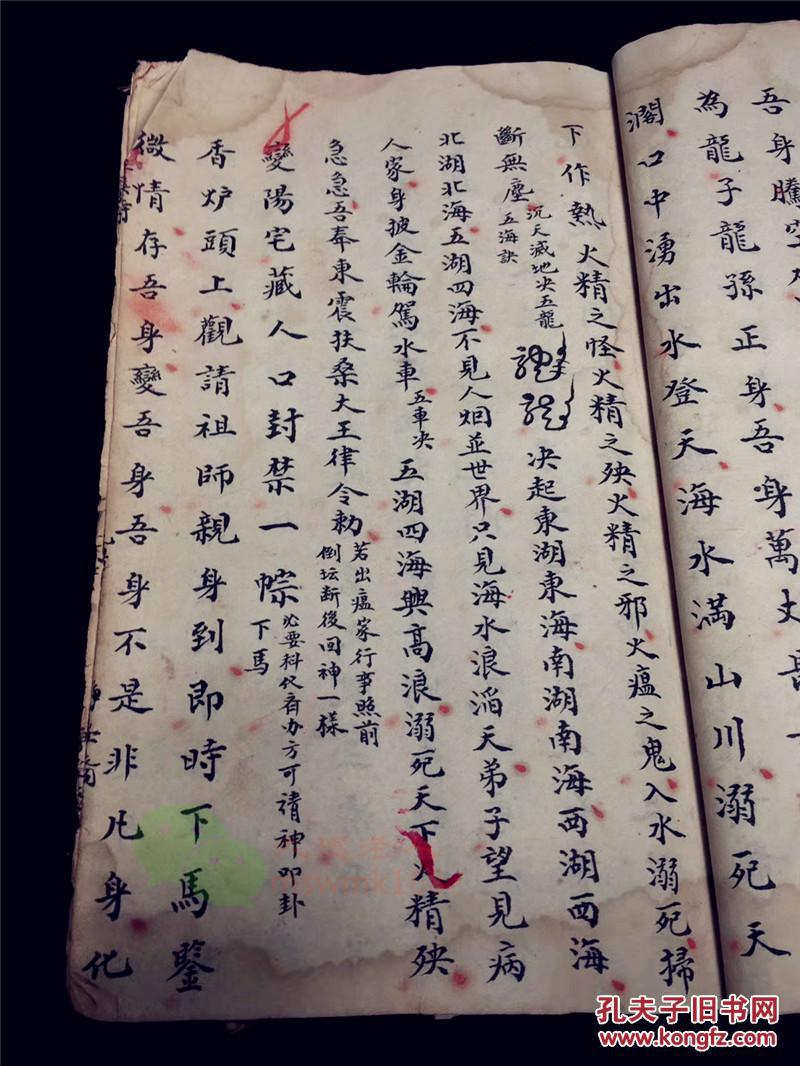 吾身騰空
為龍子龍孫正身吾身萬丈長
濶口中湧出水登天海水滿山川溺死天
下作熱火精之怪火精之殃火精之邪火瘟之鬼入水溺死掃
斷無塵五海訣沉天滅地决五龍决起東湖東海南湖南海西湖西海
北湖北海五湖四海不見人烟並世界只見海水浪滔天弟子望見病
人家身披金輪駕水車五車决五湖四海興高浪溺死天下火精殃
急急吾奉東震扶桑大王律令勅若出瘟家行事照前
倒坛断後回神一樣
變陽宅藏人口封禁一幓必要科仪斉办方可請神叩卦
下馬
香炉頭上觀請祖師親身到即時下馬鑒
微情存吾身變吾身吾身不是非凡身化
孔夫子旧书网
www.kongfz.com